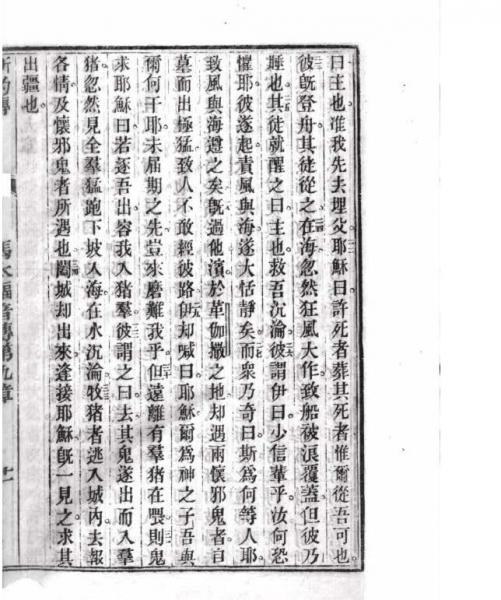 曰主也准我先去埋父耶穌曰許死者葬其死者惟爾從吾可也
彼既登舟其徒從之在海忽然狂風大作致船被浪覆蓋但彼乃
睡也其徒就醒之曰主也救吾沉淪彼謂伊曰少信輩乎汝何恐
懼耶彼遂起責風與海遂大恬靜矣而衆乃奇曰斯為何等人耶
致風與海遵之矣既過他濱於革伽撒之地却遇兩懷邪鬼者自
墓而出極猛致人不敢經彼路伊却喊曰耶穌爾為神之子吾與
爾何干耶未届期之先豈來磨難我乎但遠離有羣猪在喂則鬼
求耶穌曰若逐吾出容我入猪羣彼謂之曰去其鬼遂出而入羣
猪忽然見全羣猛跑下坡入海在水沉淪牧猪者逃入城內去報
各情及懷邪鬼者所遇也闔城却出來逢接耶穌既一見之求其
出疆也
馬太福音傳第九章 十一